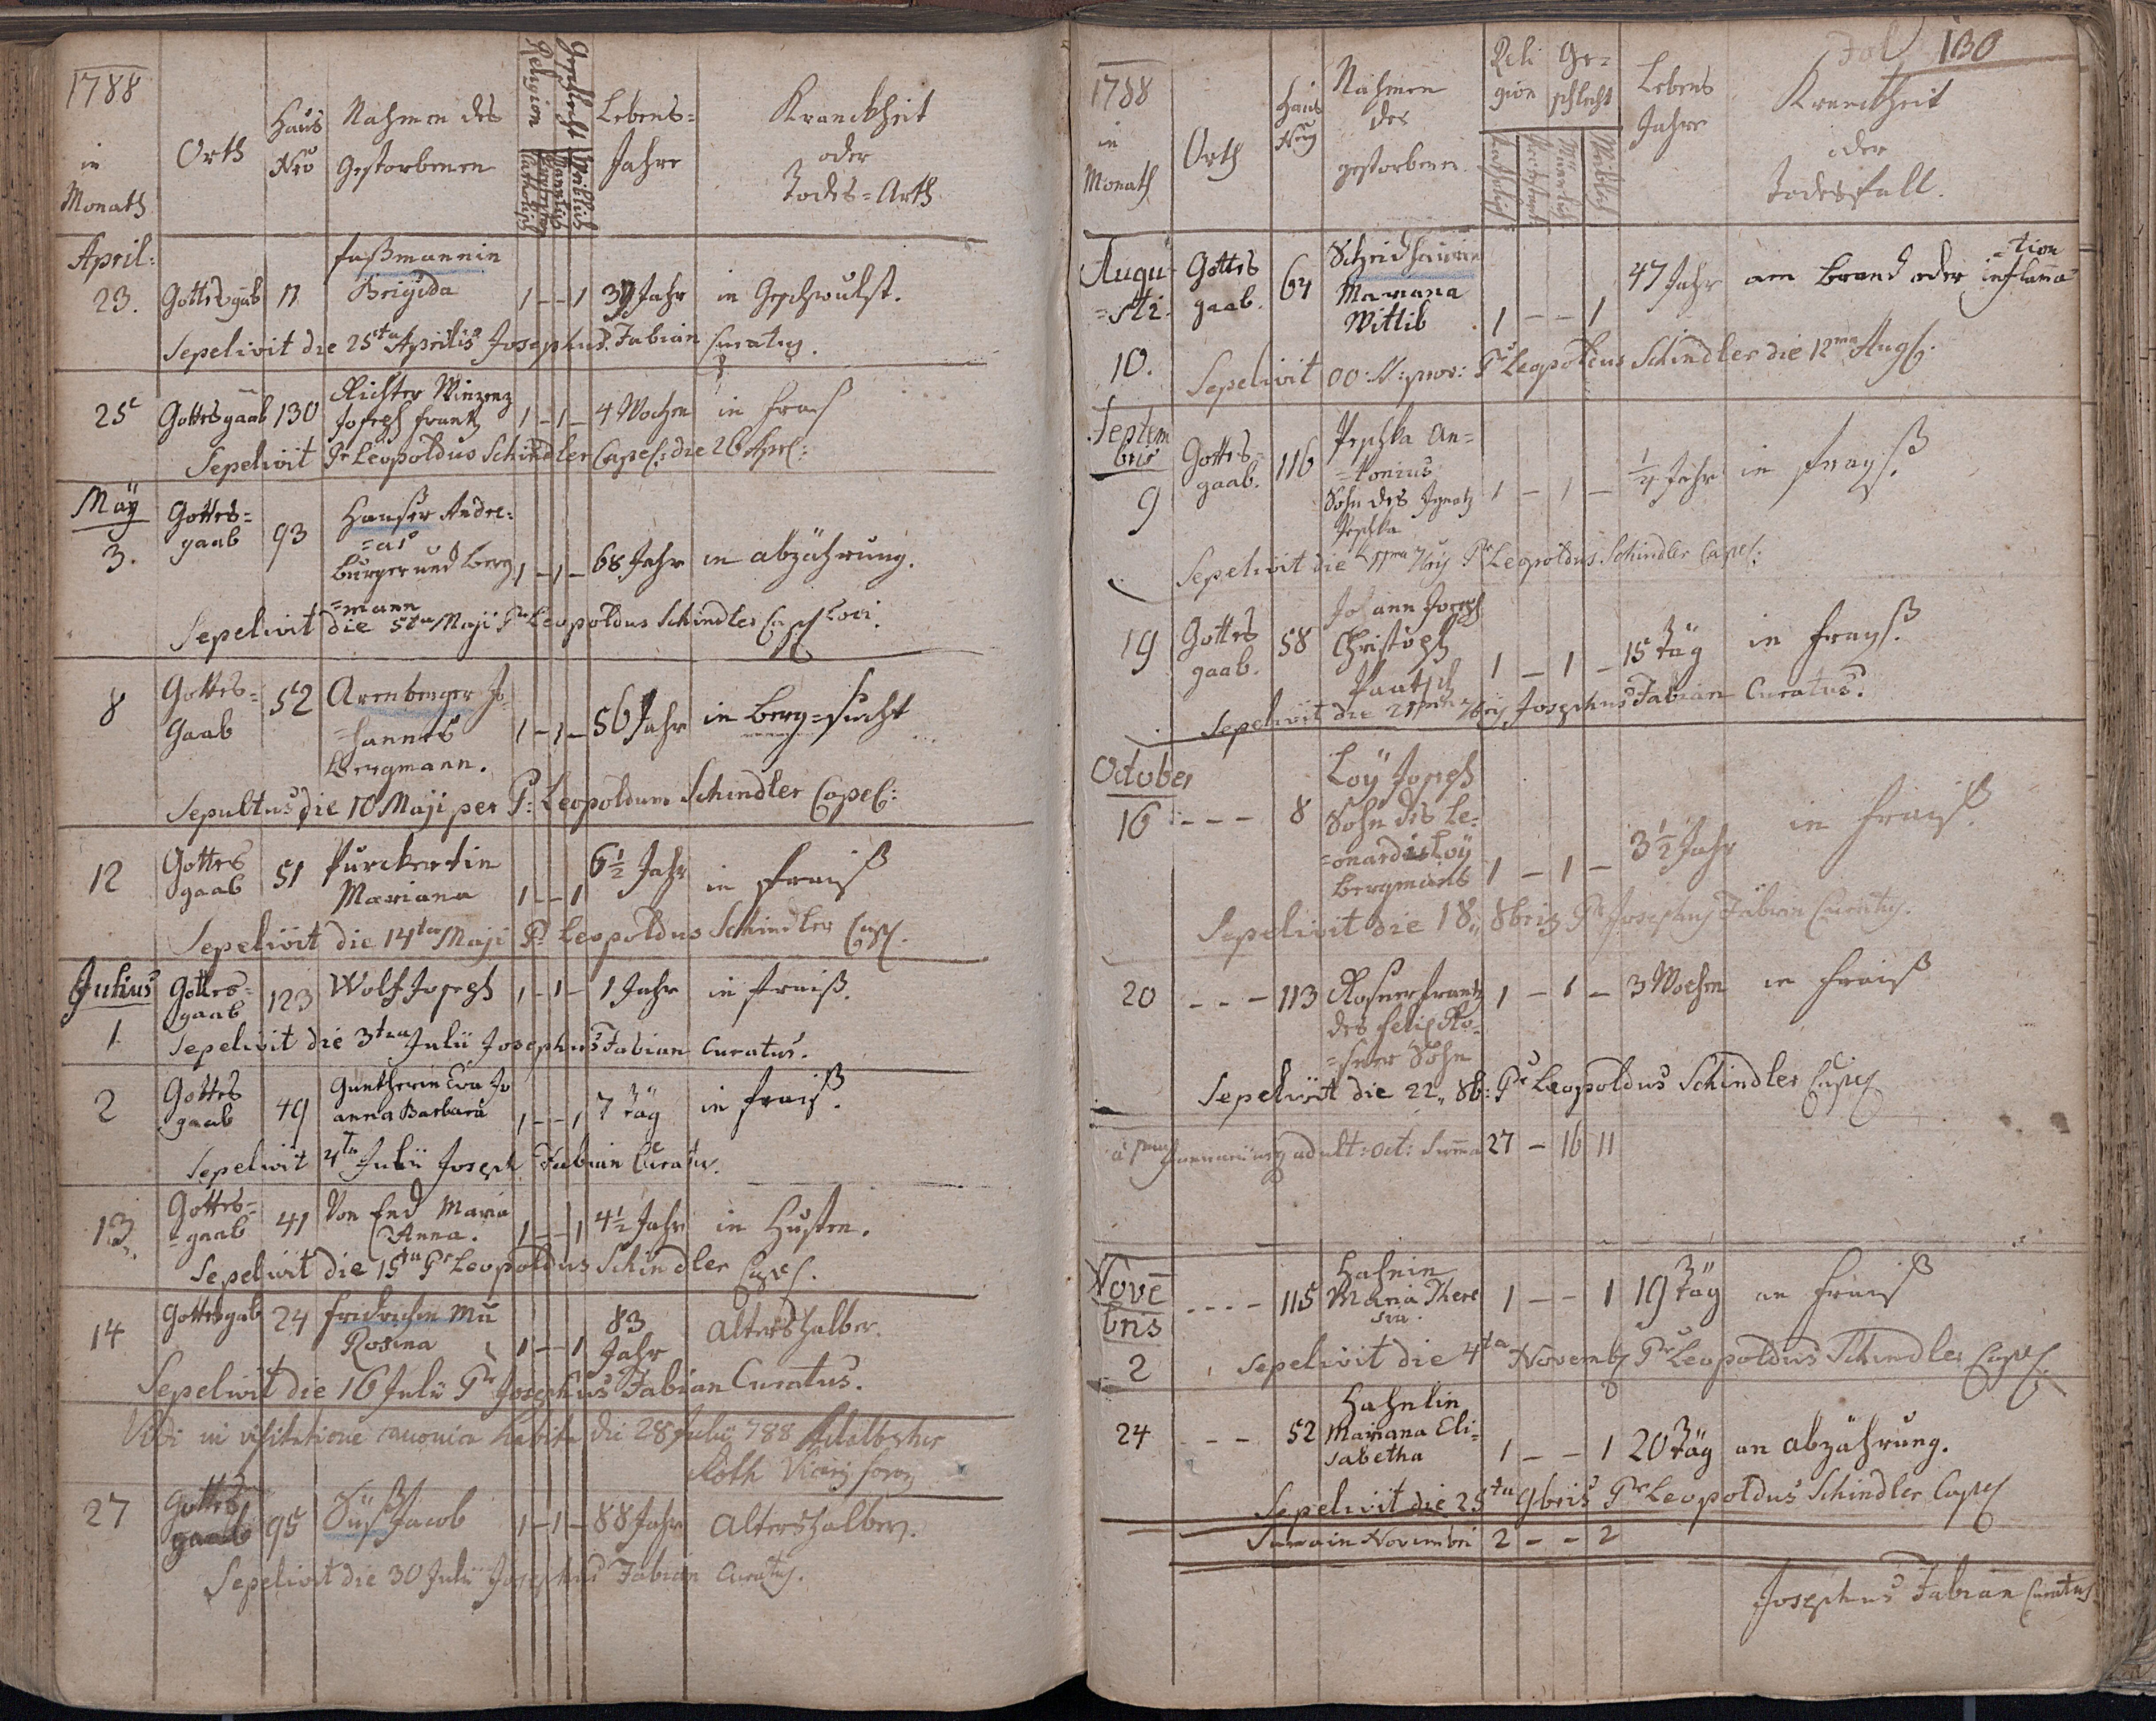 1788
in
Monath
Orth
Haus
Nro
Nahmen des
Gestorbenen
Religion
Catholisch
Geschlecht
Mannlich
Weiblich
Lebens=
Jahre
Kranckheit
oder
Todes=Arth
April:
23. Gottesgab 11 Faßmannin
Brigida 1 - - 1 Jahr in Geschwulst.
Sepelivit die 25ta Aprilis Josephus Fabian Curatus.
25 Gottesgaab 130 Richter Winzenz
Joseph Frantz 1 - 1 - 4 Wochen in Frais
Sepelivit Pr Leopoldus Schindler Capel: die 26 Apl:
Maÿ
3. Gottes=
gaab 93 Hauser Andre=
=as
Burger und Berg
=mann 1 - 1 - 68 Jahr in abzährung.
Sepelivit die 5ta Maji Pr Leopoldus Schindler Capl Loci.
8 Gottes=
Gaab 52 Arenberger Jo=
=hannes
Bergmann. 1 - 1 - 56 Jahr in Berg=sucht
Sepultus die 10 Maji per P: Leopoldum Schindler Capel:
12 Gottes
gaab 51 Purckertin
Mariana 1 - - 1 6½ Jahr in Fraiß
Sepelivit die 14ta Maji P: Leopoldus Schindler Capl.
Julius
1 Gottes=
gaab 123 Wolf Joseph 1 - 1 - 1 Jahr in Fraiß.
Sepelivit die 3tia Julii Josephus Fabian Curatus.
2 Gottes
gaab 49 Guntherin Eva Jo
anna Barbara 1 - - 1 7 Täg in Fraiß.
Sepelivit 4ta Julii Joseph Fabian Curatus.
13. Gottes=
=gaab 41 Von End Maria
Anna. 1 - - 1 4½ Jahr in Husten.
Sepelivit die 15ta Pr Leopoldus Schindler Capel.
14 Gottesgab 24 Fridrichin
Rosina 1 - - 1 83
Jahr Altershalber.
Sepelivit die 16 Julii Pr Josephus Fabian Curatus.
Vidi in visitatione canonica habita die 28 Julii 788 Adalbertus
Roth
27 Gottes
gaab 95 Süß Jacob 1 - 1 - 88 Jahr Altershalber.
Sepelivit die 30 Julii Josephus Fabian Curatus.
Fol 130
1788
in
Monath
Orth
Haus
Nahmen
des
gestorbenen.
Reli
gion
Ge=
schlecht
Weiblich
Lebens
Jahre
Kranckheit
oder
Todesfall.
Augu
=sti
10. Gottes
gaab. 64
Mariana
Wittib 1 - - 1 47 Jahr am Brand oder inflama
=tion
Sepelivit Pr Leopoldus Schindler die 12ma Aug.
Septem
bris
9 Gottes=
gaab. 116 Peschka An=
=tonius
Sohn des Ignatz
Peschka 1 - 1 - ¼ Jahr in Frays.
Sepelivit die 11ma 7bris Pr Leopoldus Schindler Capel:
19 Gottes
gaab. 58 Johann Joseph
Christoph
Paatsch 1 - 1 - 15 Täg in Frays.
Sepelivit die 21ma 7bris Josephus Fabian Curatus.
October
16 - - - 8 Loÿ Joseph
Sohn des Le=
=onardis Loÿ
Bergmans 1 - 1 - 3½ Jahr in Frais.
Sepelivit die 18 8bris Pr Josephus Fabian Curatus.
20 - - - 113 Rosner Frantz
des Felix Ro=
=sner Sohn 1 - 1 - 3 Wochen in Fraiß
Sepelivit die 22 8b: Pr Leopoldus Schindler Capel
Oct: Suma 27 - 16 11
Nove
bris
2 - - - - 115 Hahnin
Maria There
sia. 1 - - 1 19 Täg an Fraiß
Sepelivit die 4ta Novemb Pr Leopoldus Schindler Capel.
24 - - 52 Hahnlin
Mariana Eli=
sabetha 1 - - 1 20 Täg an abzährung.
Sepelivit die 25ta 9bris Pr Leopoldus Schindler Capel
Suma in Novembri 2 - - 2
Josephus Fabian Curatus